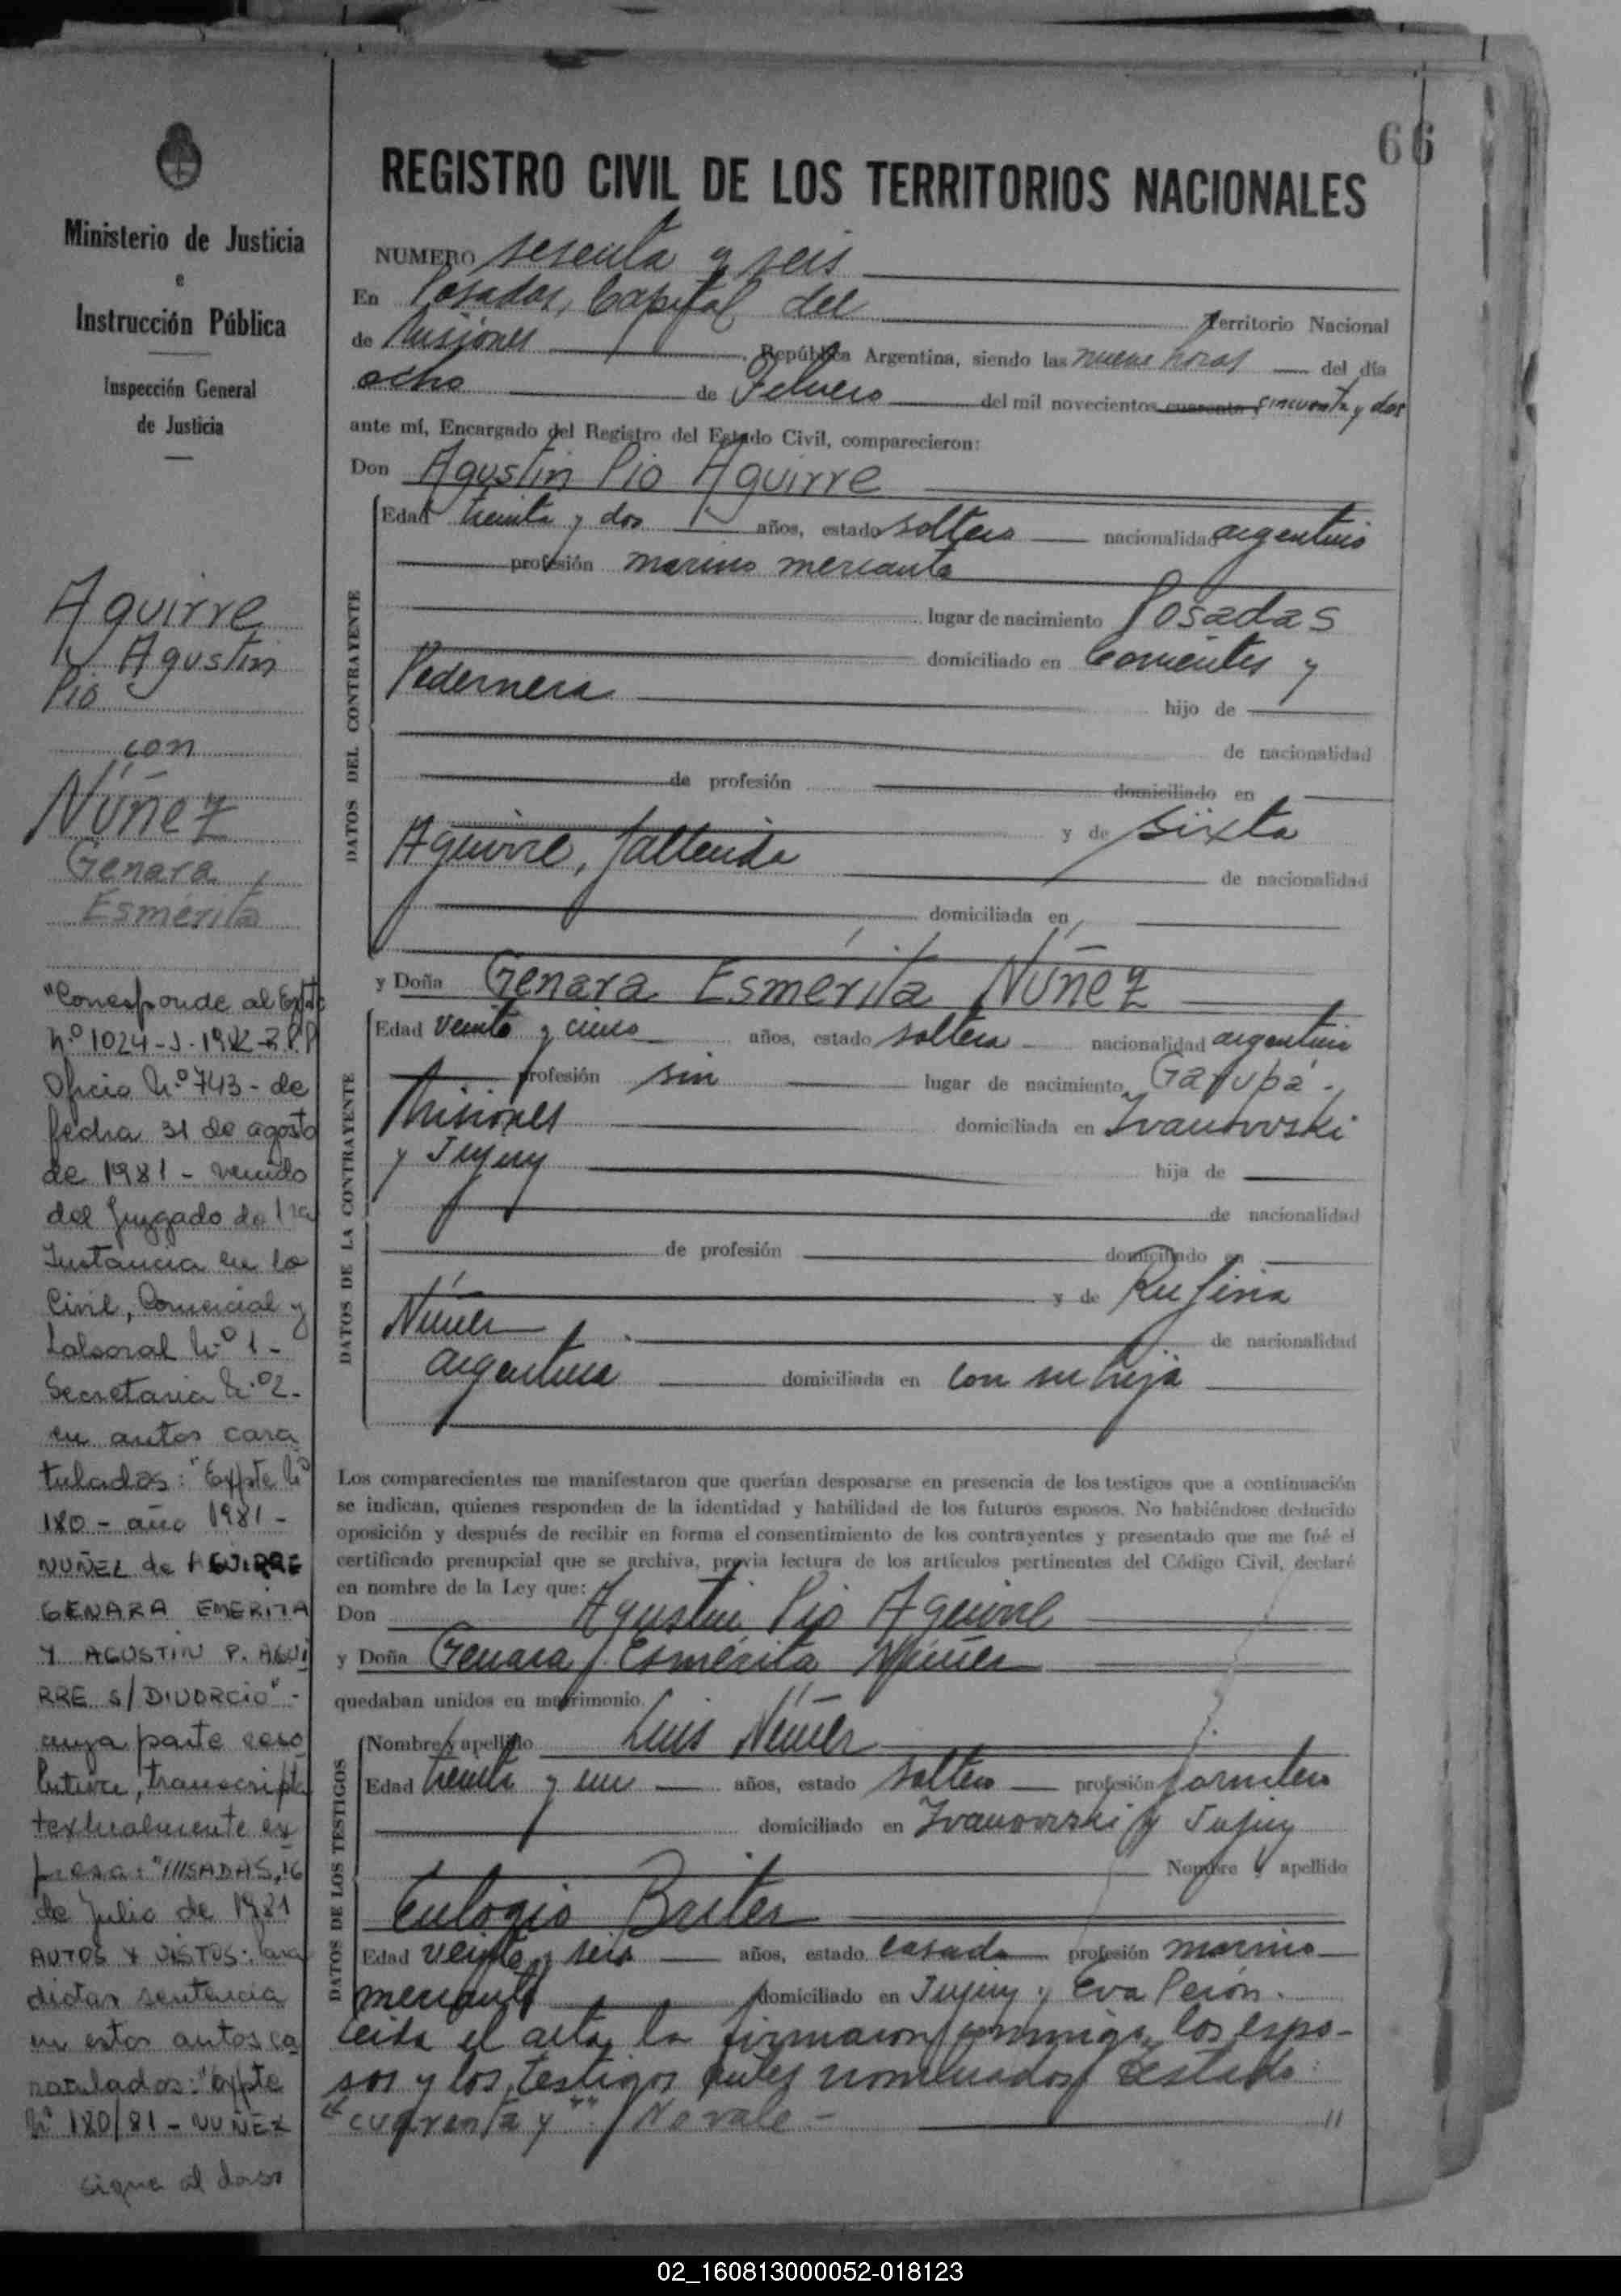 66
Ministerio de Justicia
e
Instrucción Pública
Inspección General
de Justicia
Aguirre
Agustín
Pío
con
Núñez
Genara
Esmérita
"Corresponde al Expte
Nº 1024-J-1982-R.P.P
Oficio Nº 743 - de
fecha 31 de agosto
de 1981 - venido
del Juzgado de 1ra
Instancia en lo
Civil, Comercial y
Laboral Nº 1 -
Secretaria Nº 2 -
en autos cara
tulados: "Expte Nº
180 - año 1981 -
NUÑEZ de AGUIRRE
GENARA EMERITA
Y AGUSTIN P. AGUI
RRE S/ DIVORCIO" -
cuya parte reso
lutiva, transcripta
textualmente ex
presa: "///SADAS, 16
de Julio de 1981
AUTOS Y VISTOS: Para
dictar sentencia
en estos autos ca
ratulados: "Expte
Nº 180/81 - NUÑEZ
sigue al dorso
REGISTRO CIVIL DE LOS TERRITORIOS NACIONALES
NUMERO sesenta y seis
En Posadas, Capital del Territorio Nacional
de Misiones, República Argentina, siendo las nueve horas del día
ocho de Febrero del mil novecientos cuarenta y cincuenta y dos
ante mí, Encargado del Registro del Estado Civil, comparecieron:
Don Agustín Pío Aguirre
DATOS DEL CONTRAYENTE
Edad treinta y dos años, estado soltero nacionalidad argentino
profesión marino mercante
lugar de nacimiento Posadas
domiciliado en Corrientes y
Pedernera hijo de
de nacionalidad
de profesión domiciliado en
y de Sixta
Aguirre, fallecida de nacionalidad
domiciliada en
y Doña Genara Esmérita Núñez
DATOS DE LA CONTRAYENTE
Edad veinte y cinco años, estado soltera nacionalidad argentina
profesión sin lugar de nacimiento Garupá -
Misiones domiciliada en Ivanovski
y Jujuy hija de
de nacionalidad
de profesión domiciliado en
y de Rufina
Núñez de nacionalidad
argentina domiciliada en con su hija
Los comparecientes me manifestaron que querían desposarse en presencia de los testigos que a continuación
se indican, quienes responden de la identidad y habilidad de los futuros esposos. No habiéndose deducido
oposición y después de recibir en forma el consentimiento de los contrayentes y presentado que me fué el
certificado prenupcial que se archiva, previa lectura de los artículos pertinentes del Código Civil, declaré
en nombre de la Ley que:
Don Agustín Pío Aguirre
y Doña Genara Esmérita Núñez
quedaban unidos en matrimonio.
DATOS DE LOS TESTIGOS
Nombre y apellido Luis Núñez
Edad treinta y un años, estado soltero profesión jornalero
domiciliado en Ivanovski y Jujuy
Nombre y apellido
Eulogio Brites
Edad veinte y seis años, estado casado profesión marino
mercante domiciliado en Jujuy y Eva Perón.
Leida el acta, la firmaron conmigo, los espo-
sos y los testigos antes nombrados Testado:
"cuarenta y" No vale - //
02_160813000052-018123